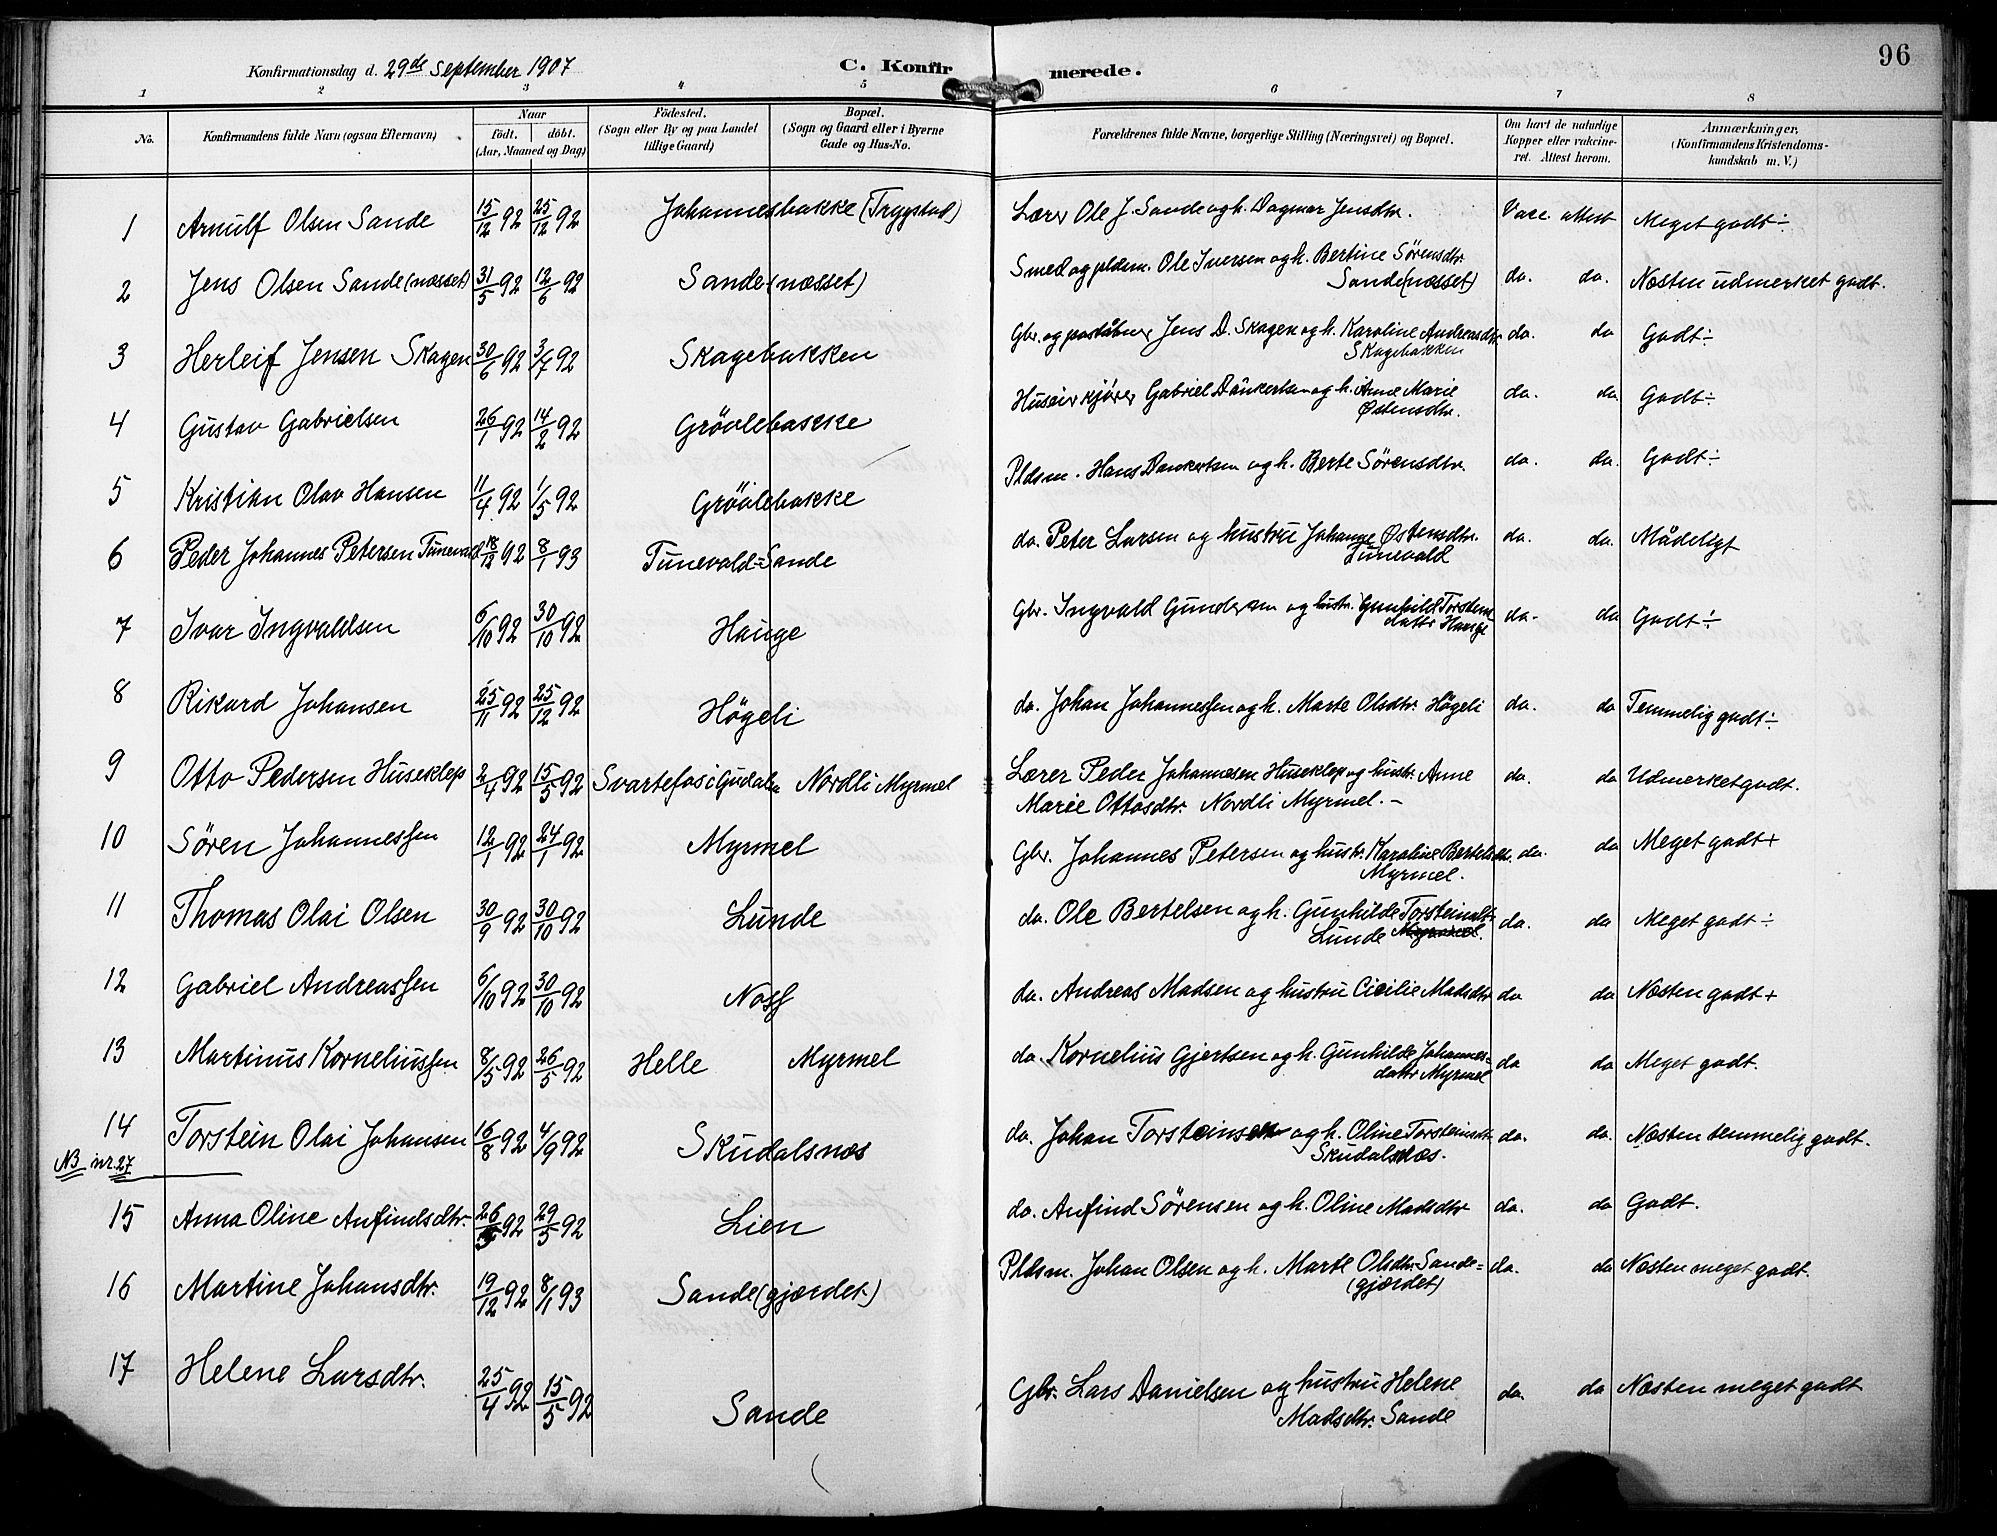 96
Konfirmationsdag d. 29de September 1907 C. Konfirmerede.
1 2 3 4 5 6 7 8
No. Konfirmandens fulde Navn (ogsaa Efternavn) Naar født. døbt. (Aar, Maaned og Dag) Fødested. (Sogn eller By og paa Landet tillige Gaard) Bopæl. (Sogn og Gaard eller i Byerne Gade og Hus-No. Forældrenes fulde Navne, borgerlige Stilling (Næringsvei) og Bopæl. Om havt de naturlige Kopper eller vakcineret. Attest herom. Anmærkninger, (Konfirmandens Kristendomskundskab m. V.)
1 Arnulf Olsen Sande 15/12 92 25/12 92 Johannesbakke (Trygstad) Lærer Ole J. Sande og h. Dagmar Jensdtr. Vacc. attest Meget godt ÷
2 Jens Olsen Sande (næsset) 31/5 92 12/6 92 Sande (næsset) Smed og pldsm. Ole Iversen og h. Bertine Sørensdtr.
Sande (næsset) do. do. Næsten udmerket godt.
3 Herleif Jensen Skagen 30/6 92 3/7 92 Skagebakken Gbr. og postaabner Jens D. Skagen og h. Karoline Andreasdtr.
Skagebakken do. do Godt ÷
4 Gustav Gabrielsen 26/1 92 14/2 92 Grøvlebakke Huseier kjører Gabriel Dankertsen og h. Anne Marie
Østensdtr. do. do. Godt ÷
5 Kristian Olav Hansen 11/4 92 1/5 92 Grøvlebakke Pldsm. Hans Dankertsen og h. Berte Sørensdtr. do. do. Godt ÷
6 Peder Johannes Petersen Tunevald 18/12 92 8/1 93 Tunevald-Sande do. Peter Larsen og hustru Johanne Østensdtr.
Tunevald do. do. Mådeligt
7 Ivar Ingvaldsen 6/10 92 30/10 92 Hauge Gbr. Ingvald Gundersen og hustr. Gunhild Torsteins
dattr Hauge do. do Godt ÷
8 Rikard Johansen 25/11 92 25/12 92 Høgeli do. Johan Johannessen og h. Marte Olsdtr. Høgeli do. do Temmelig godt ÷
9 Otto Pedersen Huseklep 2/4 92 15/5 92 Svartefos i Gudalen Nordli Myrmel Lærer Peder Johannesen Huseklep og hustr. Anne
Marie Ottosdtr. Nordli Myrmel. - do. do Udmerket godt.
10 Søren Johannessen 12/1 92 24/1 92 Myrmel Gbr. Johannes Petersen og hustr. Karoline Bertelsdtr.
Myrmel. do. do Meget godt +
11 Thomas Olai Olsen 30/9 92 30/10 92 Lunde do. Ole Bertelsen og h. Gunhilde Torsteinsdtr
Lunde Myrmel. do. do Meget godt ÷
12 Gabriel Andreassen 6/10 92 30/10 92 Noss do. Andreas Madsen og hustru Cicilie Madsdtr do do Næsten godt +
13 Martinus Korneliussen 8/5 92 26/5 92 Helle Myrmel do. Kornelius Gjertsen og h. Gunhilde Johannes=
dattr Myrmel do do Meget godt.
14 Torstein Olai Johansen 16/8 92 4/9 92 Skudalsnæs do. Johan Torsteinsen og h. Oline Torsteinsdtr.
Skudalsnæs. do. do. Næsten temmelig godt.
NB nr. 27
15 Anna Oline Anfindsdtr. 26/5 92 29/5 92 Lien do. Anfind Sørensen og h. Oline Madsdtr do. do Godt.
16 Martine Johansdtr. 19/12 92 8/1 93 Sande (gjærdet) Pldsm. Johan Olsen og h. Marte Olsdtr. Sande=
(gjærdet) do. do Næsten meget godt.
17 Helene Larsdtr. 25/4 92 15/5 92 Sande Gbr. Lars Danielsen og hustru Helene
Madsdtr. Sande do. do Næsten meget godt